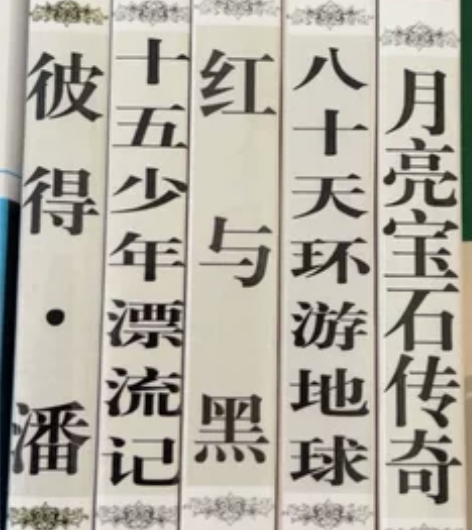 彼得·潘
十五少年漂流记
红与黑
八十天环游地球
月亮宝石传奇